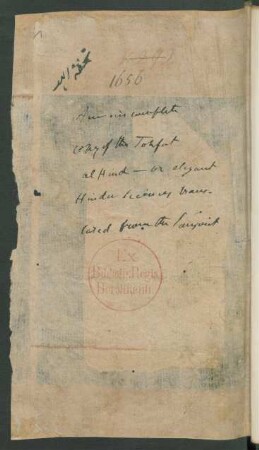 تحفة الهند
1656
An incomplete
copy of the Tohfut
al Hind — or elegant
Hindu Sciences trans-
lated from the Sanscrit
Ex
Biblioth. Regia
Berolinensi